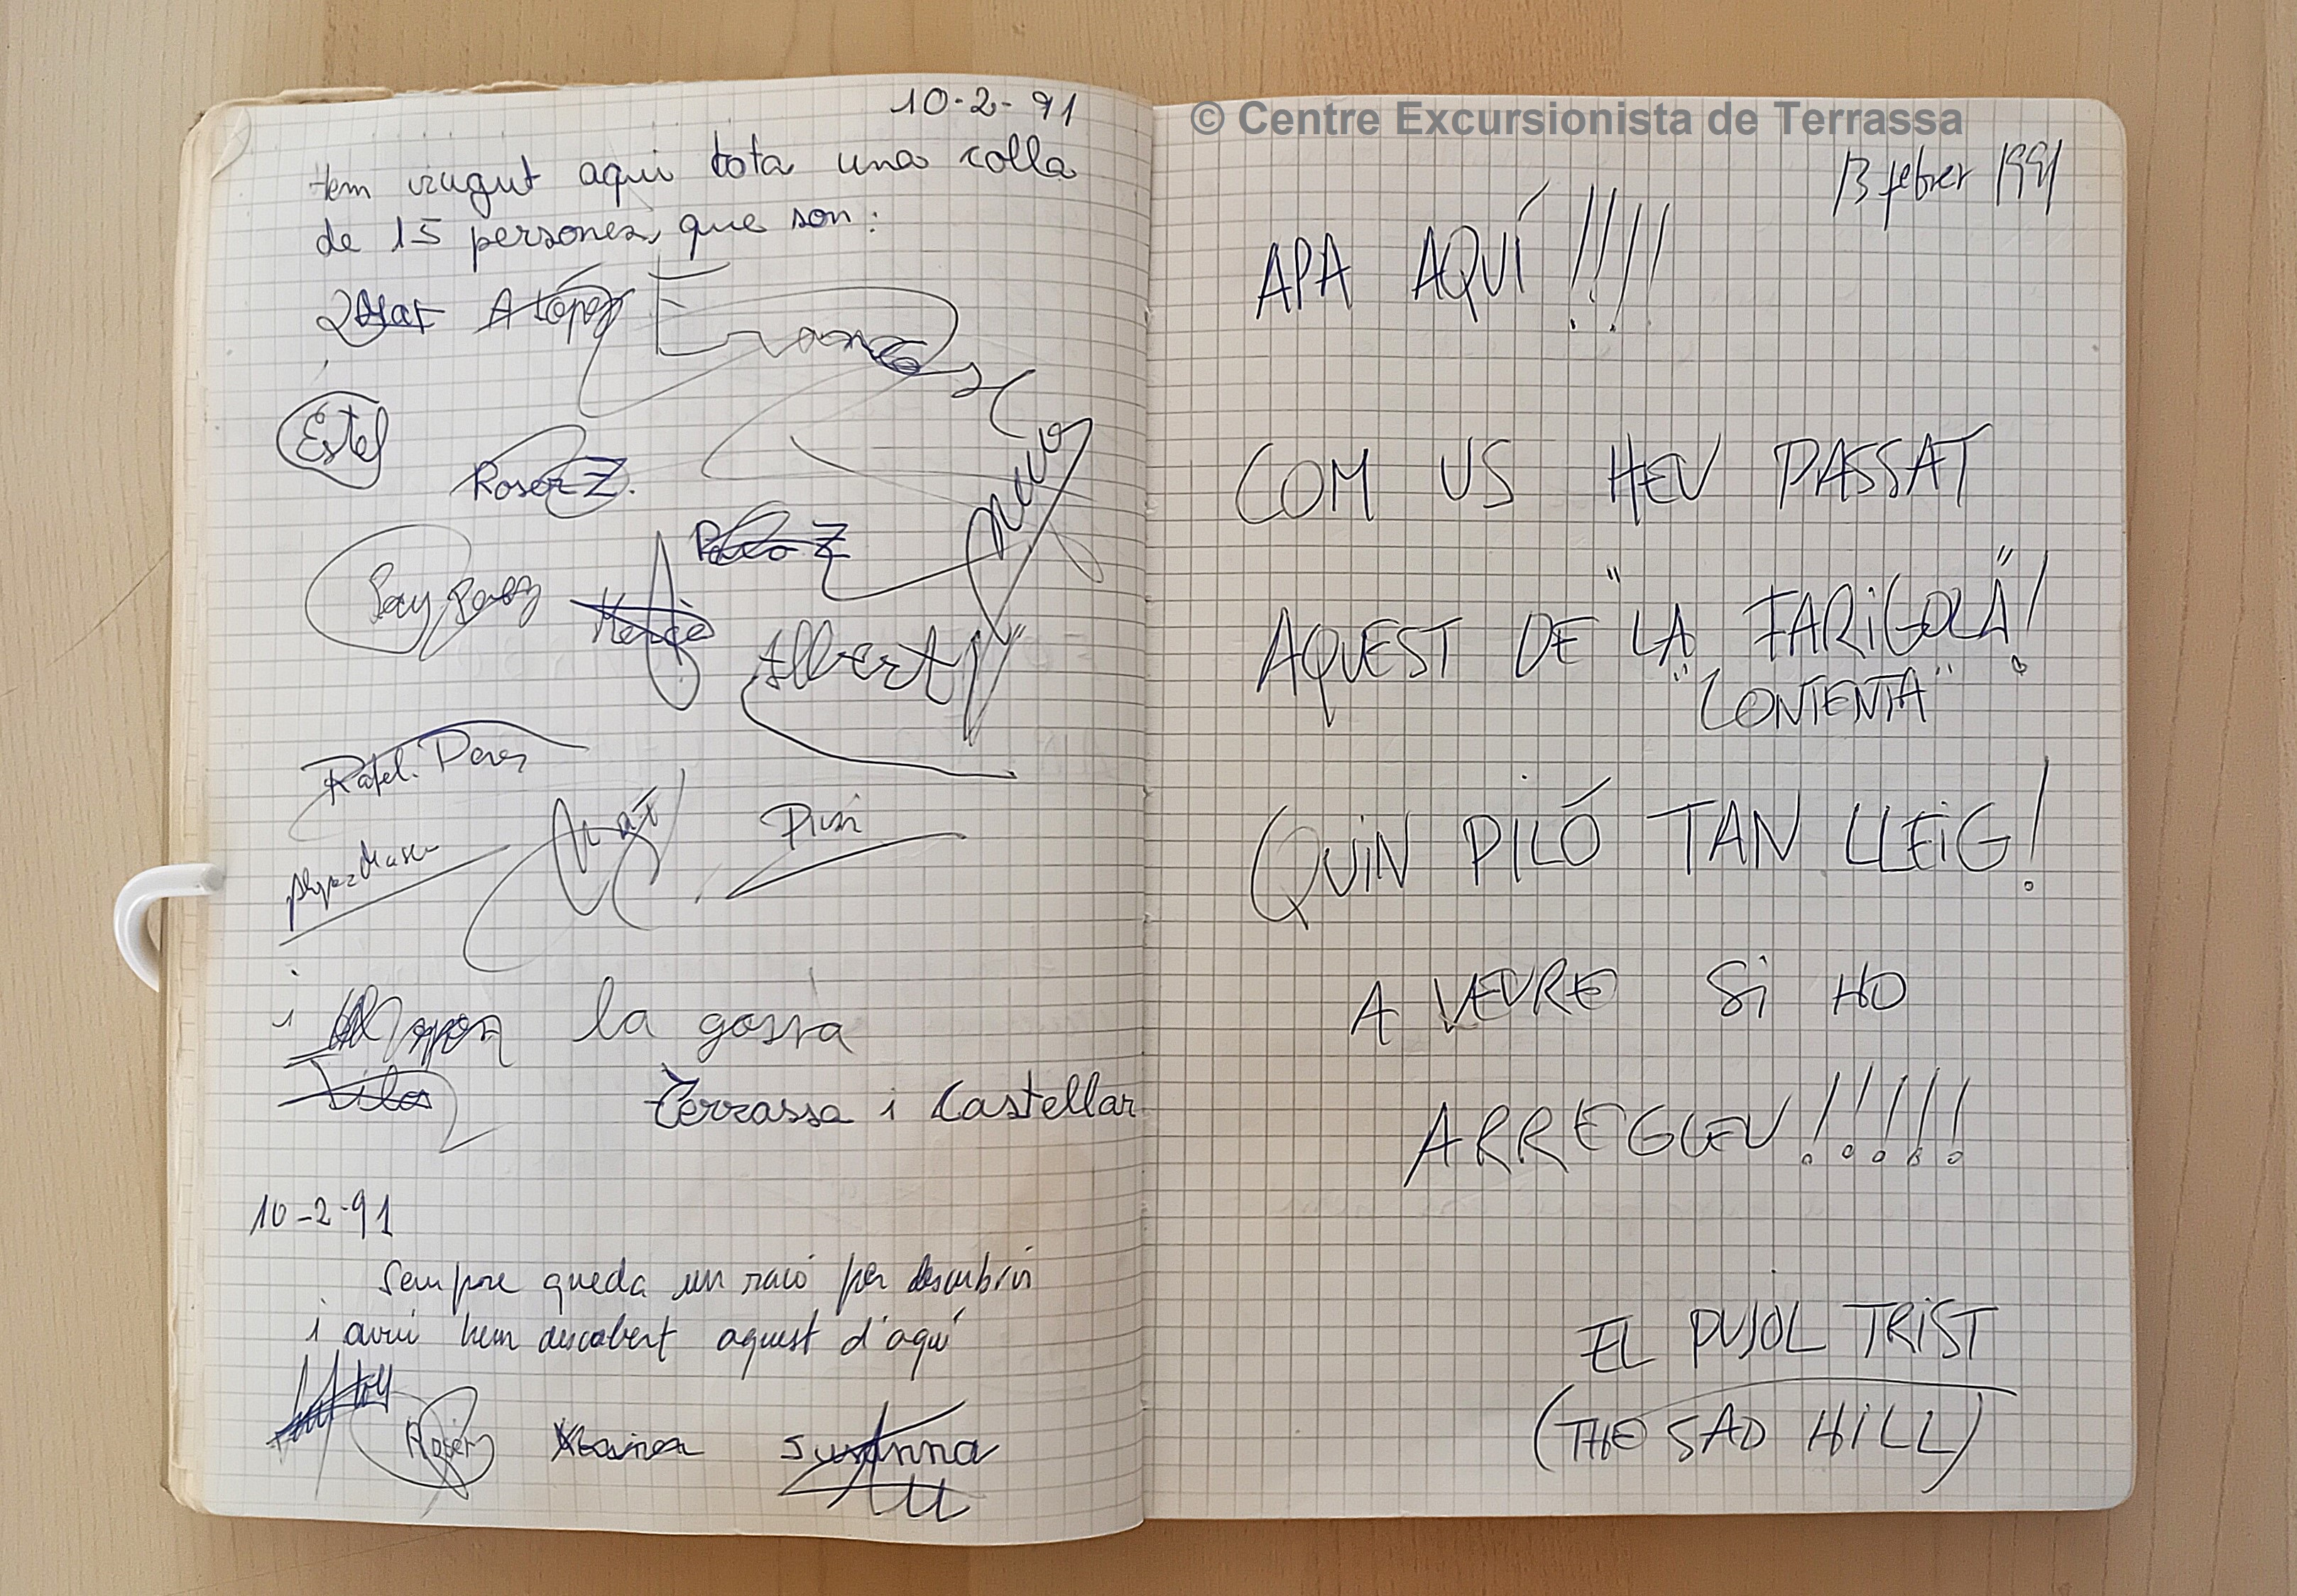 10-2-91
Hem vingut aqui tota una colla
de 15 persones, que son:
Estel
Roser Z.
Paco Z
Mercè
Albert
Rafel. Perez
i
la gossa
Terrassa i Castellar
10-2-91
Sempre queda un racó per descubrir
i avui hem descobert aquest d'aquí
Roser
Susanna
© Centre Excursionista de Terrassa
13 febrer 1991
APA AQUÍ !!!!
COM US HEU PASSAT
AQUEST DE "LA FARIGOLA"!
"CONTENTA"
QUIN PILÓ TAN LLEIG!
A VEURE SI HO
ARREGLEU!!!!!
EL PUJOL TRIST
(THE SAD HILL)